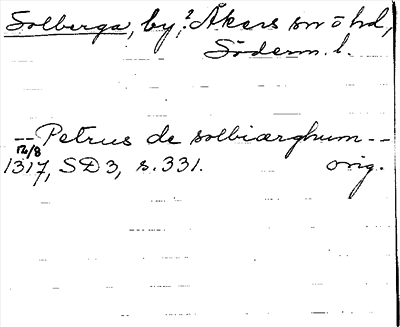 Solberga, by, ? Åkers sn o hd,
Söderm. l.
-- Petrus de solbiærghum --
12/8
1317, SD 3, s. 331. orig.